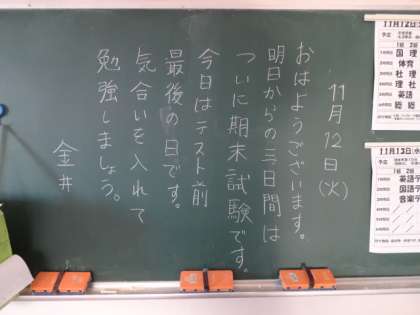 11月12日(火)
おはようございます。
明日からの三日間は
ついに期末試験です。
今日はテスト前
最後の日です。
気合いを入れて
勉強しましょう。
金井
11月12日(火
予定
1組 2組
国 理
体育
社 理
理 社
英語
総 総
11月13日(水
予定
1組 2組
英語テ
国語テ
音楽テ